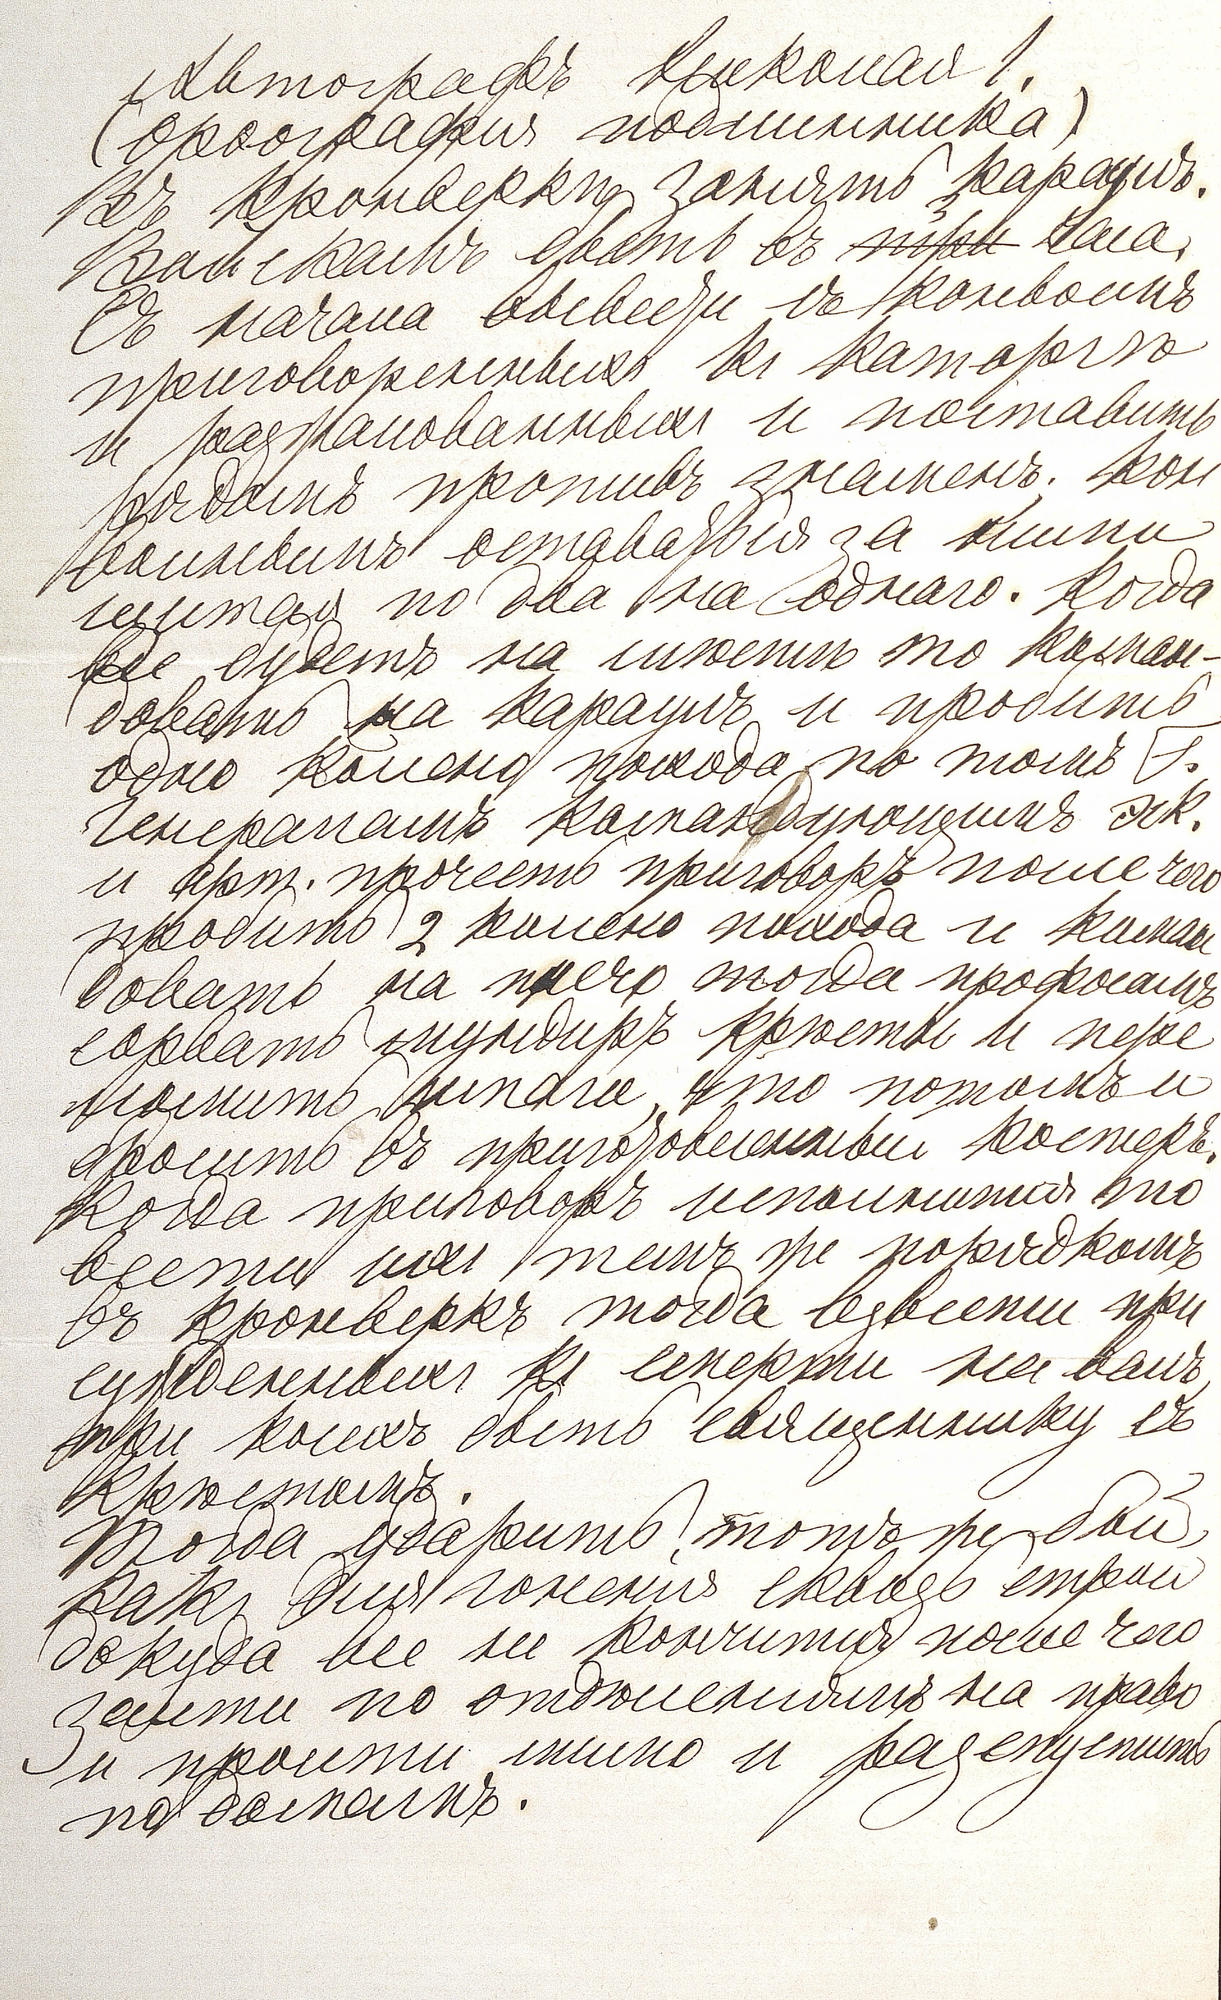 Автографъ Николая I.
(орѳографія подлинника)
Въ кронверкѣ занять караулъ.
Войскамъ быть въ три часа.
Съ начала вывести съ конвоемъ
приговоренныхъ къ каторгѣ
и разжалованныхъ и поставить
рядомъ противъ знаменъ. Кон
войнымъ оставаться за ними
щитая по два на однаго. Когда
все будетъ на мѣстѣ то коман-
довать на караулъ и пробить
одно колено похода по томъ Г.
Генераламъ командующимъ эск.
и арт. прочесть приговоръ после чего
пробить 2 колено похода и коман
довать на плечо тогда профосамъ
сорвать мундиръ кресты и пере
ломить шпаги, что потомъ и
бросить въ приготовленный костеръ.
Когда приговоръ исполнится то
вести ихъ темъ же порядкомъ
въ кронверкъ тогда взвести при
сужденныхъ къ смерти на валъ,
при коихъ быть священнику съ
крестомъ.
Тогда ударить тотъ же бой,
какъ для гоненія сквозь строй
докуда все не кончится после чего
зайти по отделеніямъ на право
и пройти мимо и распустить
по домамъ.